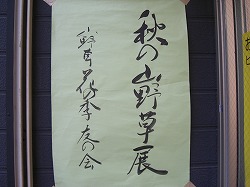 秋の山野草展
山野草花季友の会